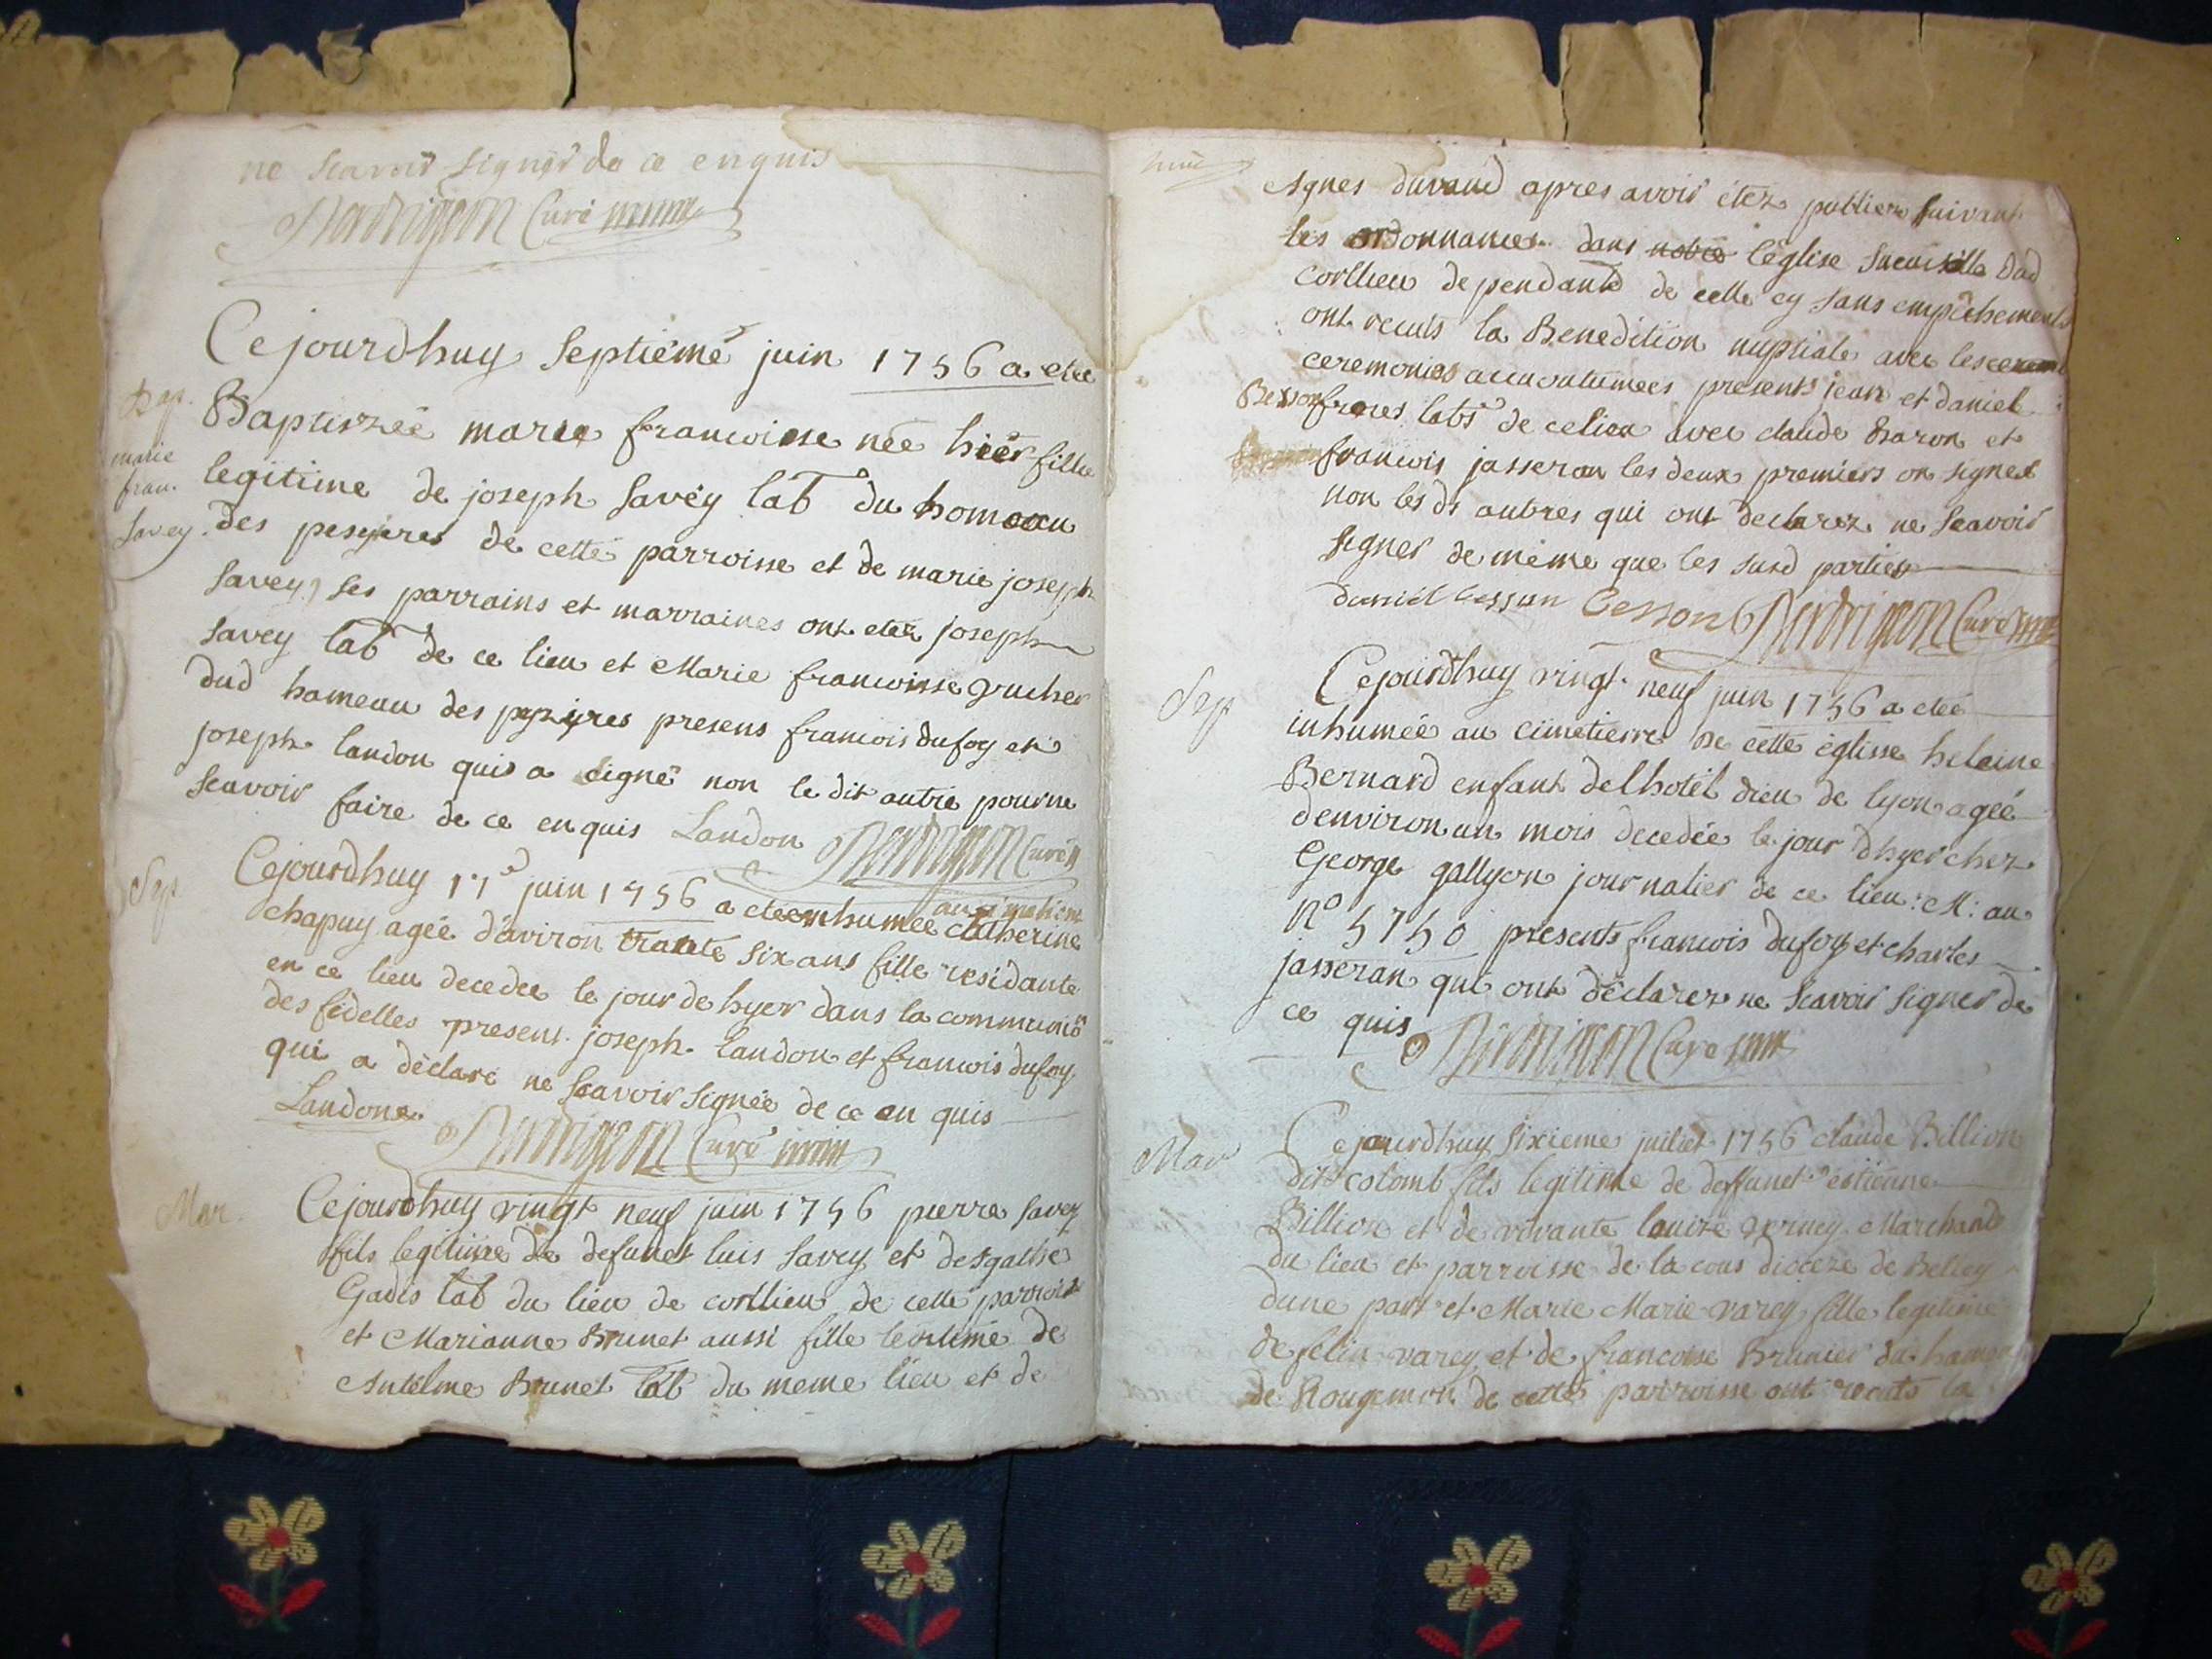 ne scavoir signer de ce enquis
Curé
Cejourdhuy septiémé juin 1756 a eteé
Bap.
Baptizeé marie francoise neé hiér fille
marie
fran.
Savey.
legitime de joseph Savéy lab du homeau
des pesyeres de cette parroisse et de marie joseph
Savey, ses parrains et marraines ont etez joseph
Savey lab de ce lieu et Marie francoisse
dud hameau des presens francois dufoy et
joseph landon qui a signé non le dit autre pour ne
scavoir faire de ce enquis Landon Curé
Sep
Cejourdhuy 11e juin 1756 a eteé inhumeé au cimetiere Catherine
chapuy ageé d'aviron trante six ans fille residante
en ce lieu decedee le jour de hyer dans la communio
des fidelles present joseph landon et francois dufoy
qui a déclaré ne scavoir signée de ce en quis
Landon Curé
Mar.
Cejourdhuy vingt neuf juin 1756 pierre Savey
fils legitime de defunct luis Savey et
Gadis lab du lieu de corllieu de cette parroisse
et Marianne Brunet aussi fille legitime de
Antelme Brunet lab du meme lieu et de
Agnes durand apres avoir étez publiez suivant
les ordonnances dans notre l'églize sucursalle dud
corllieu dependante de celle cy sans empêchements
ont recuts la Benedition nuptiale avec les cerem
ceremonies accoutumees presents jean et daniel
Besson freres labs de celieu avec claude Baron et
francois jasseron les deux premiers on signet
non les ds autres qui ont declarez ne scavoir
signer de méme que les susd parties
daniel besson besson Curé
Sep
Cejourdhuy vingt neuf juin 1756 a eteé
inhumeé au cimetierre de cette églisse helaine
Bernard enfant de lhotél dieu de lyon ageé
denviron un mois decedée le jour dhyer chez
George gallyon journalier de ce lieu M: au
No 5750 presents francois dufoy et charles
jasseran qui ont déclarez ne scavoir signer de
ce quis Curé
Mar
Cejourdhuy sixieme juillet 1756 claude Billion
dit colomb fils legitime de deffunct étienne
Billion et de vivante louize Marchand
du lieu et parroisse de la cous dioceze de Belley
dune part et Marie Marie varey fille legitime
de felin varey et de francoise Brunier du hameau
de Rougemon de cette parroisse ont recuts la